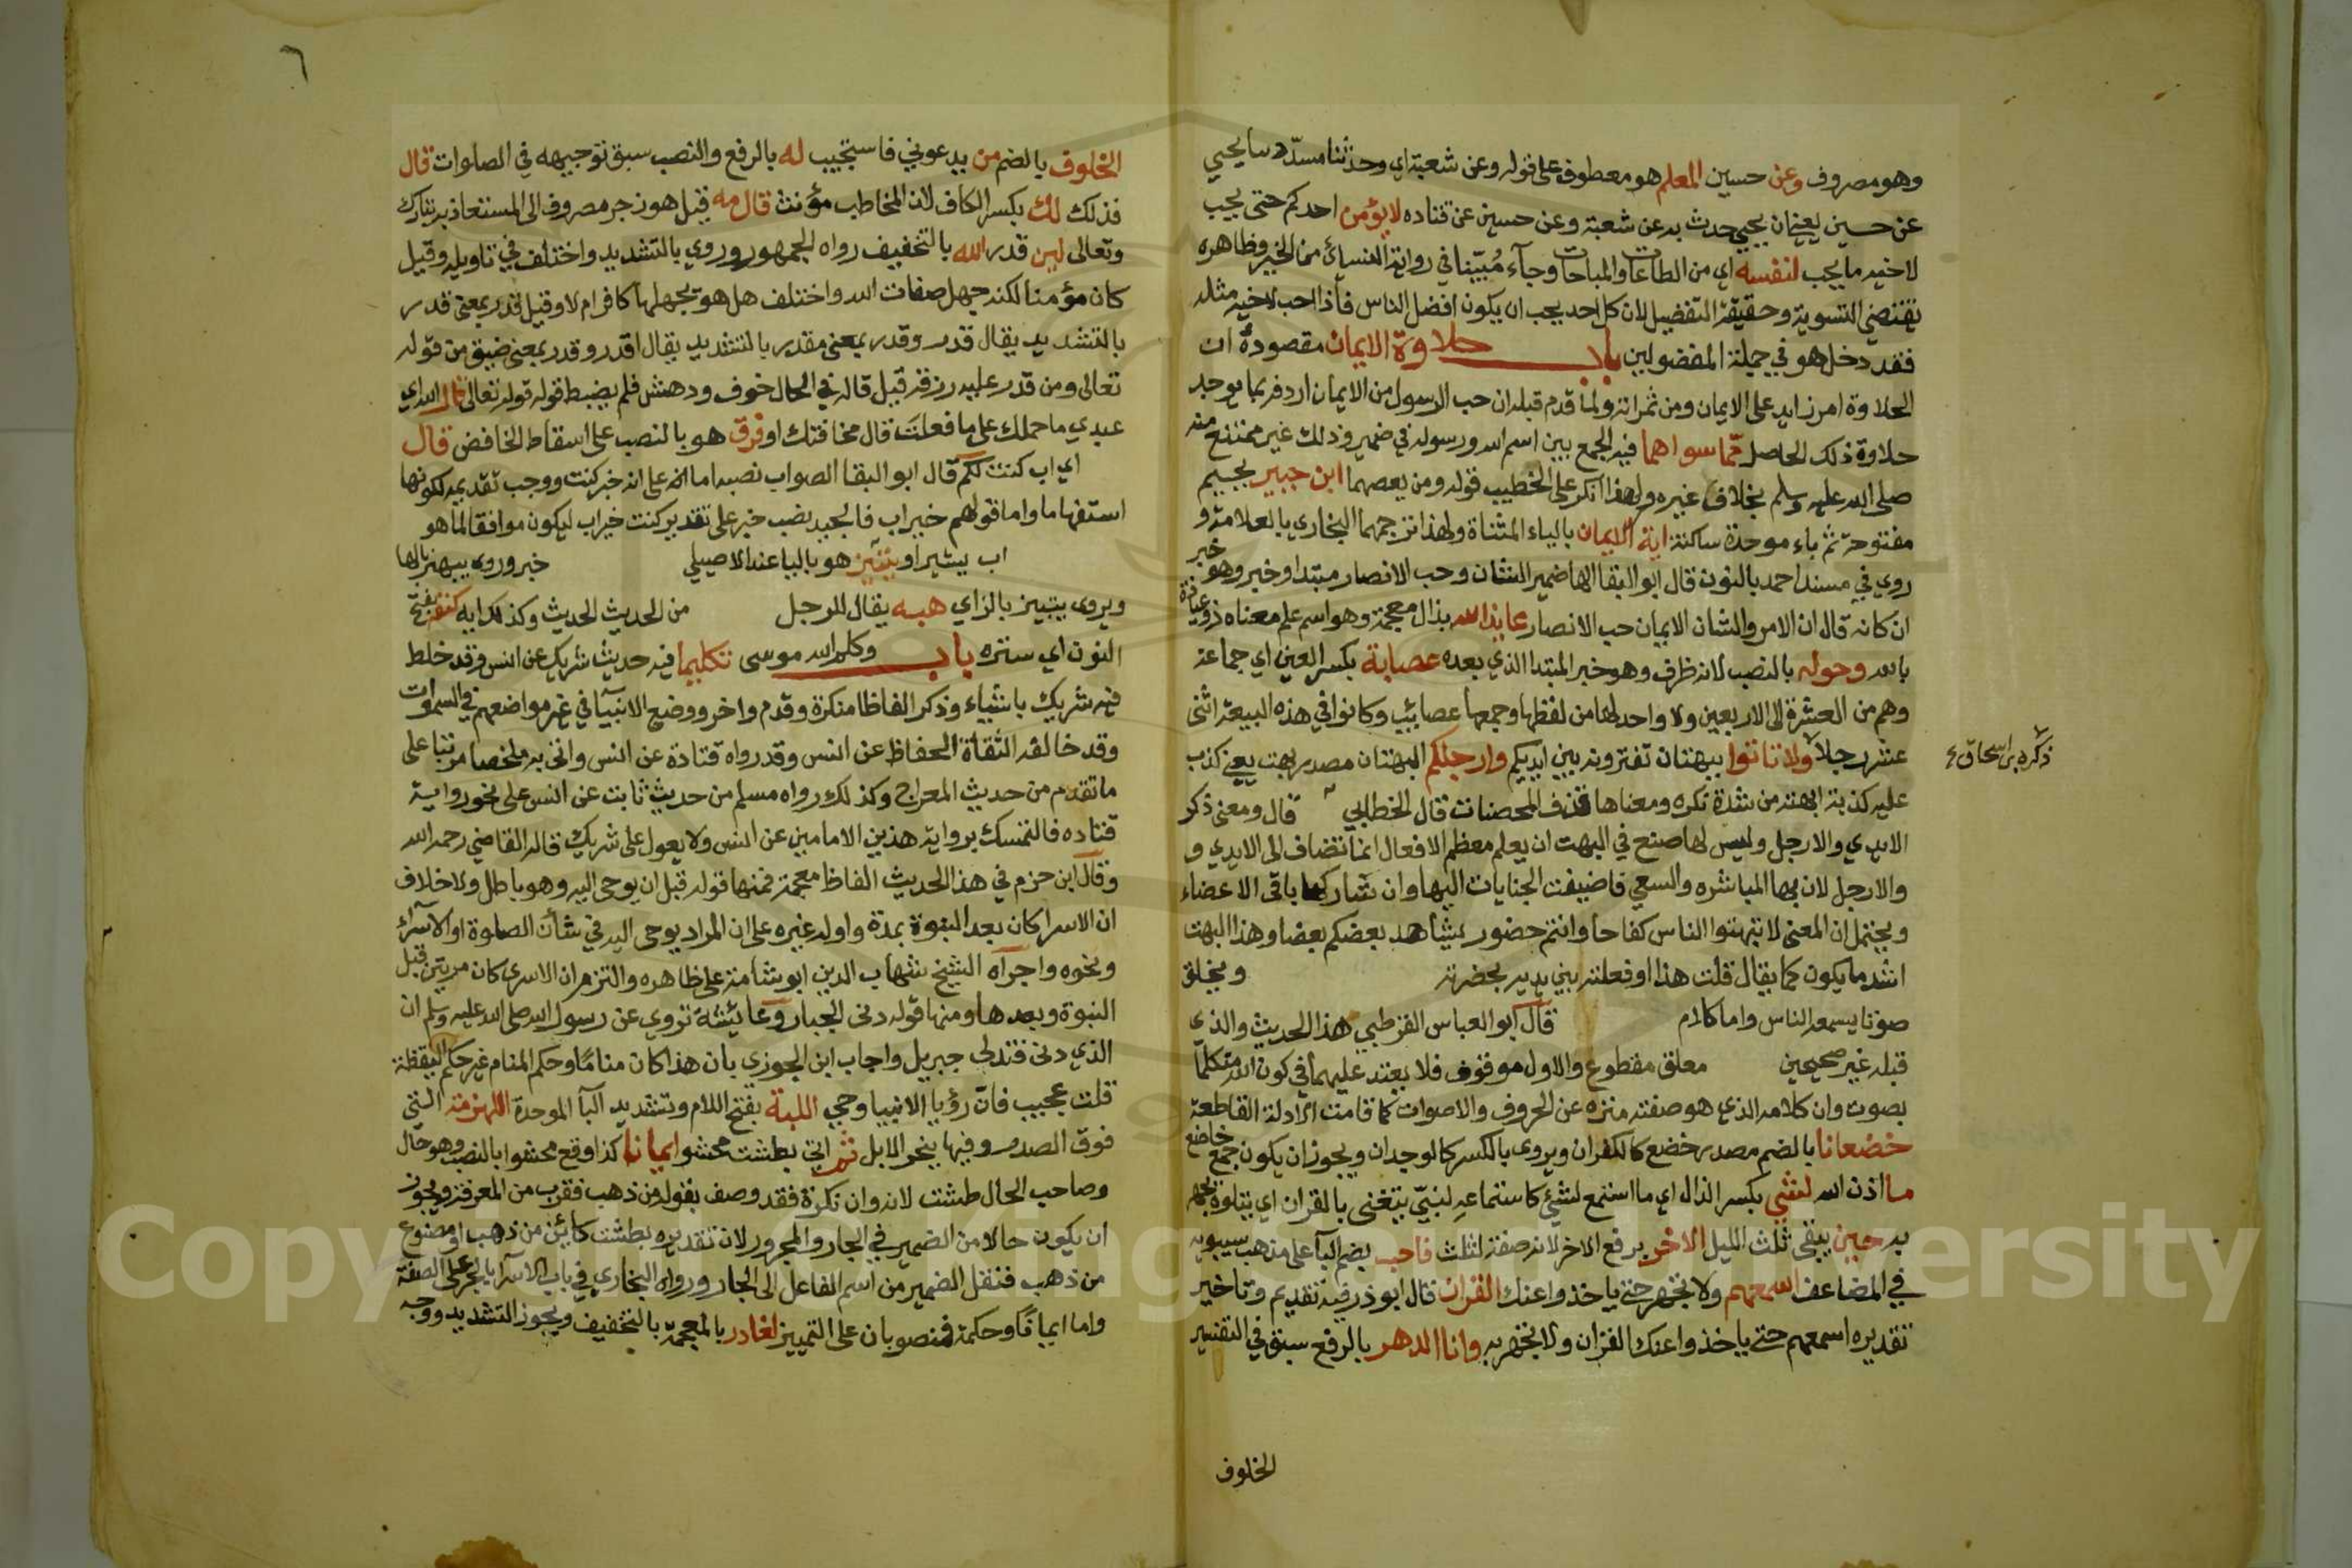 وهو مصروف وعن حسين المعلم هو معطوف على قوله وعن شعبة اي وحدثنا مسدد سا يحيى
عن حسين يعني ان يحيى حدث به عن شعبة وعن حسين عن قتاده لا يؤمن احدكم حتى يحب
لاخيه ما يحب لنفسه اي من الطاعات والمباحات وجاء مبينا في رواية النسائي من الخير وظاهره
تقتضي التسوية وحقيقة التفضيل لان كل احد يحب ان يكون افضل الناس فاذا احب لاخيه مثله
فقد دخل هو في جملة المفضولين باب حلاوة الايمان مقصوده ان
الحلاوة امر زايد على الايمان ومن ثمراته ولما قدم قبله ان حب الرسول من الايمان اردفه بما يوجد
حلاوة ذلك الحاصل مما سواهما فيه الجمع بين اسم الله ورسوله في ضمير وذلك غير ممتنع منه
صلى الله عليه وسلم بخلاف غيره ولهذا انكر على الخطيب قوله ومن يعصهما ابن جبير بجيم
مفتوحة ثم باء موحدة ساكنة اية الايمان بالياء المثناة ولهذا ترجمها البخاري بالعلامة و
روي في مسند احمد بالنون قال ابو البقا الها ضمير الشان وحب الانصار مبتدا وخبر وهو خبر
ان كانه قال ان الامر والشان الايمان حب الانصار عايذ الله بذال معجمة وهو اسم علم معناه ذو عياذة
بالله وحوله بالنصب لانه ظرف وهو خبر المبتدا الذي بعده عصابة بكسر العين اي جماعة
وهم من العشرة الى الاربعين ولا واحد لها من لفظها وجمعها عصايب وكانوا في هذه البيعة اثنى
عشر رجلا ولا تاتوا ببهتان تفترونه بين ايديكم وارجلكم البهتان مصدر بهت يعني كذب
ذكره بن اسحاق
عليه كذبة ابهته من شدة نكره ومعناها قذف المحصنات قال الخطابي قال ومعنى ذكر
الايدي والارجل وليس لها صنع في البهت ان يعلم معظم الافعال انما تضاف الى الايدي و
والارجل لان بها المباشره والسعي فاضيفت الجنايات اليها وان شاركها باقي الاعضاء
ويحتمل ان المعنى لا تبهتوا الناس كفاحا وانتم حضور يشاهد بعضكم بعضا وهذا البهت
اشد ما يكون كما يقال قلت هذا او فعلته بين يديه بحضرته ويخلق
صوتا يسمعه الناس واما كلام قال ابو العباس القرطبي هذا الحديث والذي
قبله غير صحيحين معلق مقطوع والاول موقوف فلا يعتد عليهما في كون الله متكلما
بصوت وان كلامه الذي هو صفته منزه عن الحروف والاصوات كما قامت الادلة القاطعة
خضعانا بالضم مصدر خضع كالكفران ويروى بالكسر كالوجدان ويجوز ان يكون جمع خاضع
ما اذن الله لشي بكسر الذال اي ما استمع لشئ كاستماعه لنبي يتغنى بالقران اي يتلوه يجهر
به حين يبقى ثلث الليل الاخر برفع الاخر لانه صفة لثلث فاحب بضم البا على مذهب سيبويه
في المضاعف اسمعهم ولا تجهر حتى ياخذوا عنك القران قال ابو ذر فيه تقديم وتاخير
تقديره اسمعهم حتى ياخذوا عنك القران ولا تجهر به وانا الدهر بالرفع سبق في التفسير
الخلوف
٦
الخلوف بالضم من يدعوني فاستجيب له بالرفع والنصب سبق توجيهه في الصلوات قال
فذلك لك بكسر الكاف لان المخاطب مؤنث قال مه قيل هو زجر مصروف الى المستعاذ به تبارك
وتعالى لين قدر الله بالتخفيف رواه الجمهور وروي بالتشديد واختلف في تاويله وقيل
كان مؤمنا لكنه جهل صفات الله واختلف هل هو بجهلها كافر ام لا وقيل قدر بمعنى قدر
بالتشديد يقال قدر وقدر بمعنى مقدر بالتشديد يقال اقدر وقدر بمعنى ضيق من قوله
تعالى ومن قدر عليه رزقه قيل قاله في الحال خوف ودهش فلم يضبط قوله قوله تعالى قال الله اي
عبدي ما حملك على ما فعلت قال مخافتك او فرق هو بالنصب على اسقاط الخافض قال
اي اب كنت لكم قال ابو البقا الصواب نصبه اما انه على انه خبر كنت ووجب تقديمه لكونها
استفهاما واما قولهم خير اب فالجيد نصب خبر على تقدير كنت خير اب ليكون موافقا لما هو
اب يبتير او يبتيز هو بالبا عند الاصيلي خبر وروى يبهنز بالها
ويروى يبتييز بالزاي هبه يقال للرجل من الحديث الحديث وكذلك ايه كنفه بفتح
النون اي ستره باب وكلم الله موسى تكليما فيه حديث شريك عن انس وقد خلط
فيه شريك باشياء وذكر الفاظا منكرة وقدم واخر ووضع الانبيا في غير مواضعهم في السموات
وقد خالفه الثقاة الحفاظ عن انس وقد رواه قتادة عن انس واتى به ملخصا مرتبا على
ما تقدم من حديث المعراج وكذلك رواه مسلم من حديث ثابت عن انس على نحو رواية
قتاده فالتمسك برواية هذين الامامين عن انس ولا يعول على شريك قاله القاضي رحمه الله
وقال ابن حزم في هذا الحديث الفاظ معجمة فمنها قوله قبل ان يوحى اليه وهو باطل ولا خلاف
ان الاسرا كان بعد النبوة بمدة واوله غيره على ان المراد يوحى اليه في شأن الصلوة او الاسراء
ونحوه واجراه الشيخ شهاب الدين ابو شامة على ظاهره والتزم ان الاسرى كان مرتين قبل
النبوة وبعدها ومنها قوله دنى الجبار وعايشة تروي عن رسول الله صلى الله عليه وسلم ان
الذي دنى فتدلى جبريل واجاب ابن الجوزي بان هذا كان مناما وحكم المنام غير حكم اليقظة
قلت عجيب فان رؤيا الانبيا وحي اللبة بفتح اللام وتشديد البا الموحدة اللهزمة التي
فوق الصدر وفيها ينحر الابل ثم اتي بطشت محشو ايمانا كذا وقع محشوا بالنصب وهو حال
وصاحب الحال طشت لانه وان نكرة فقد وصف بقوله من ذهب فقرب من المعرفة ويجوز
ان يكون حالا من الضمير في الجار والمجرور لان تقديره بطشت كائن من ذهب او مصنوع
من ذهب فنقل الضمير من اسم الفاعل الى الجار ورواه البخاري في باب الاسرا بالجر على الصفة
واما ايمانا وحكمة فمنصوبان على التمييز لغادر بالمعجمة بالتخفيف ويجوز التشديد ووجه